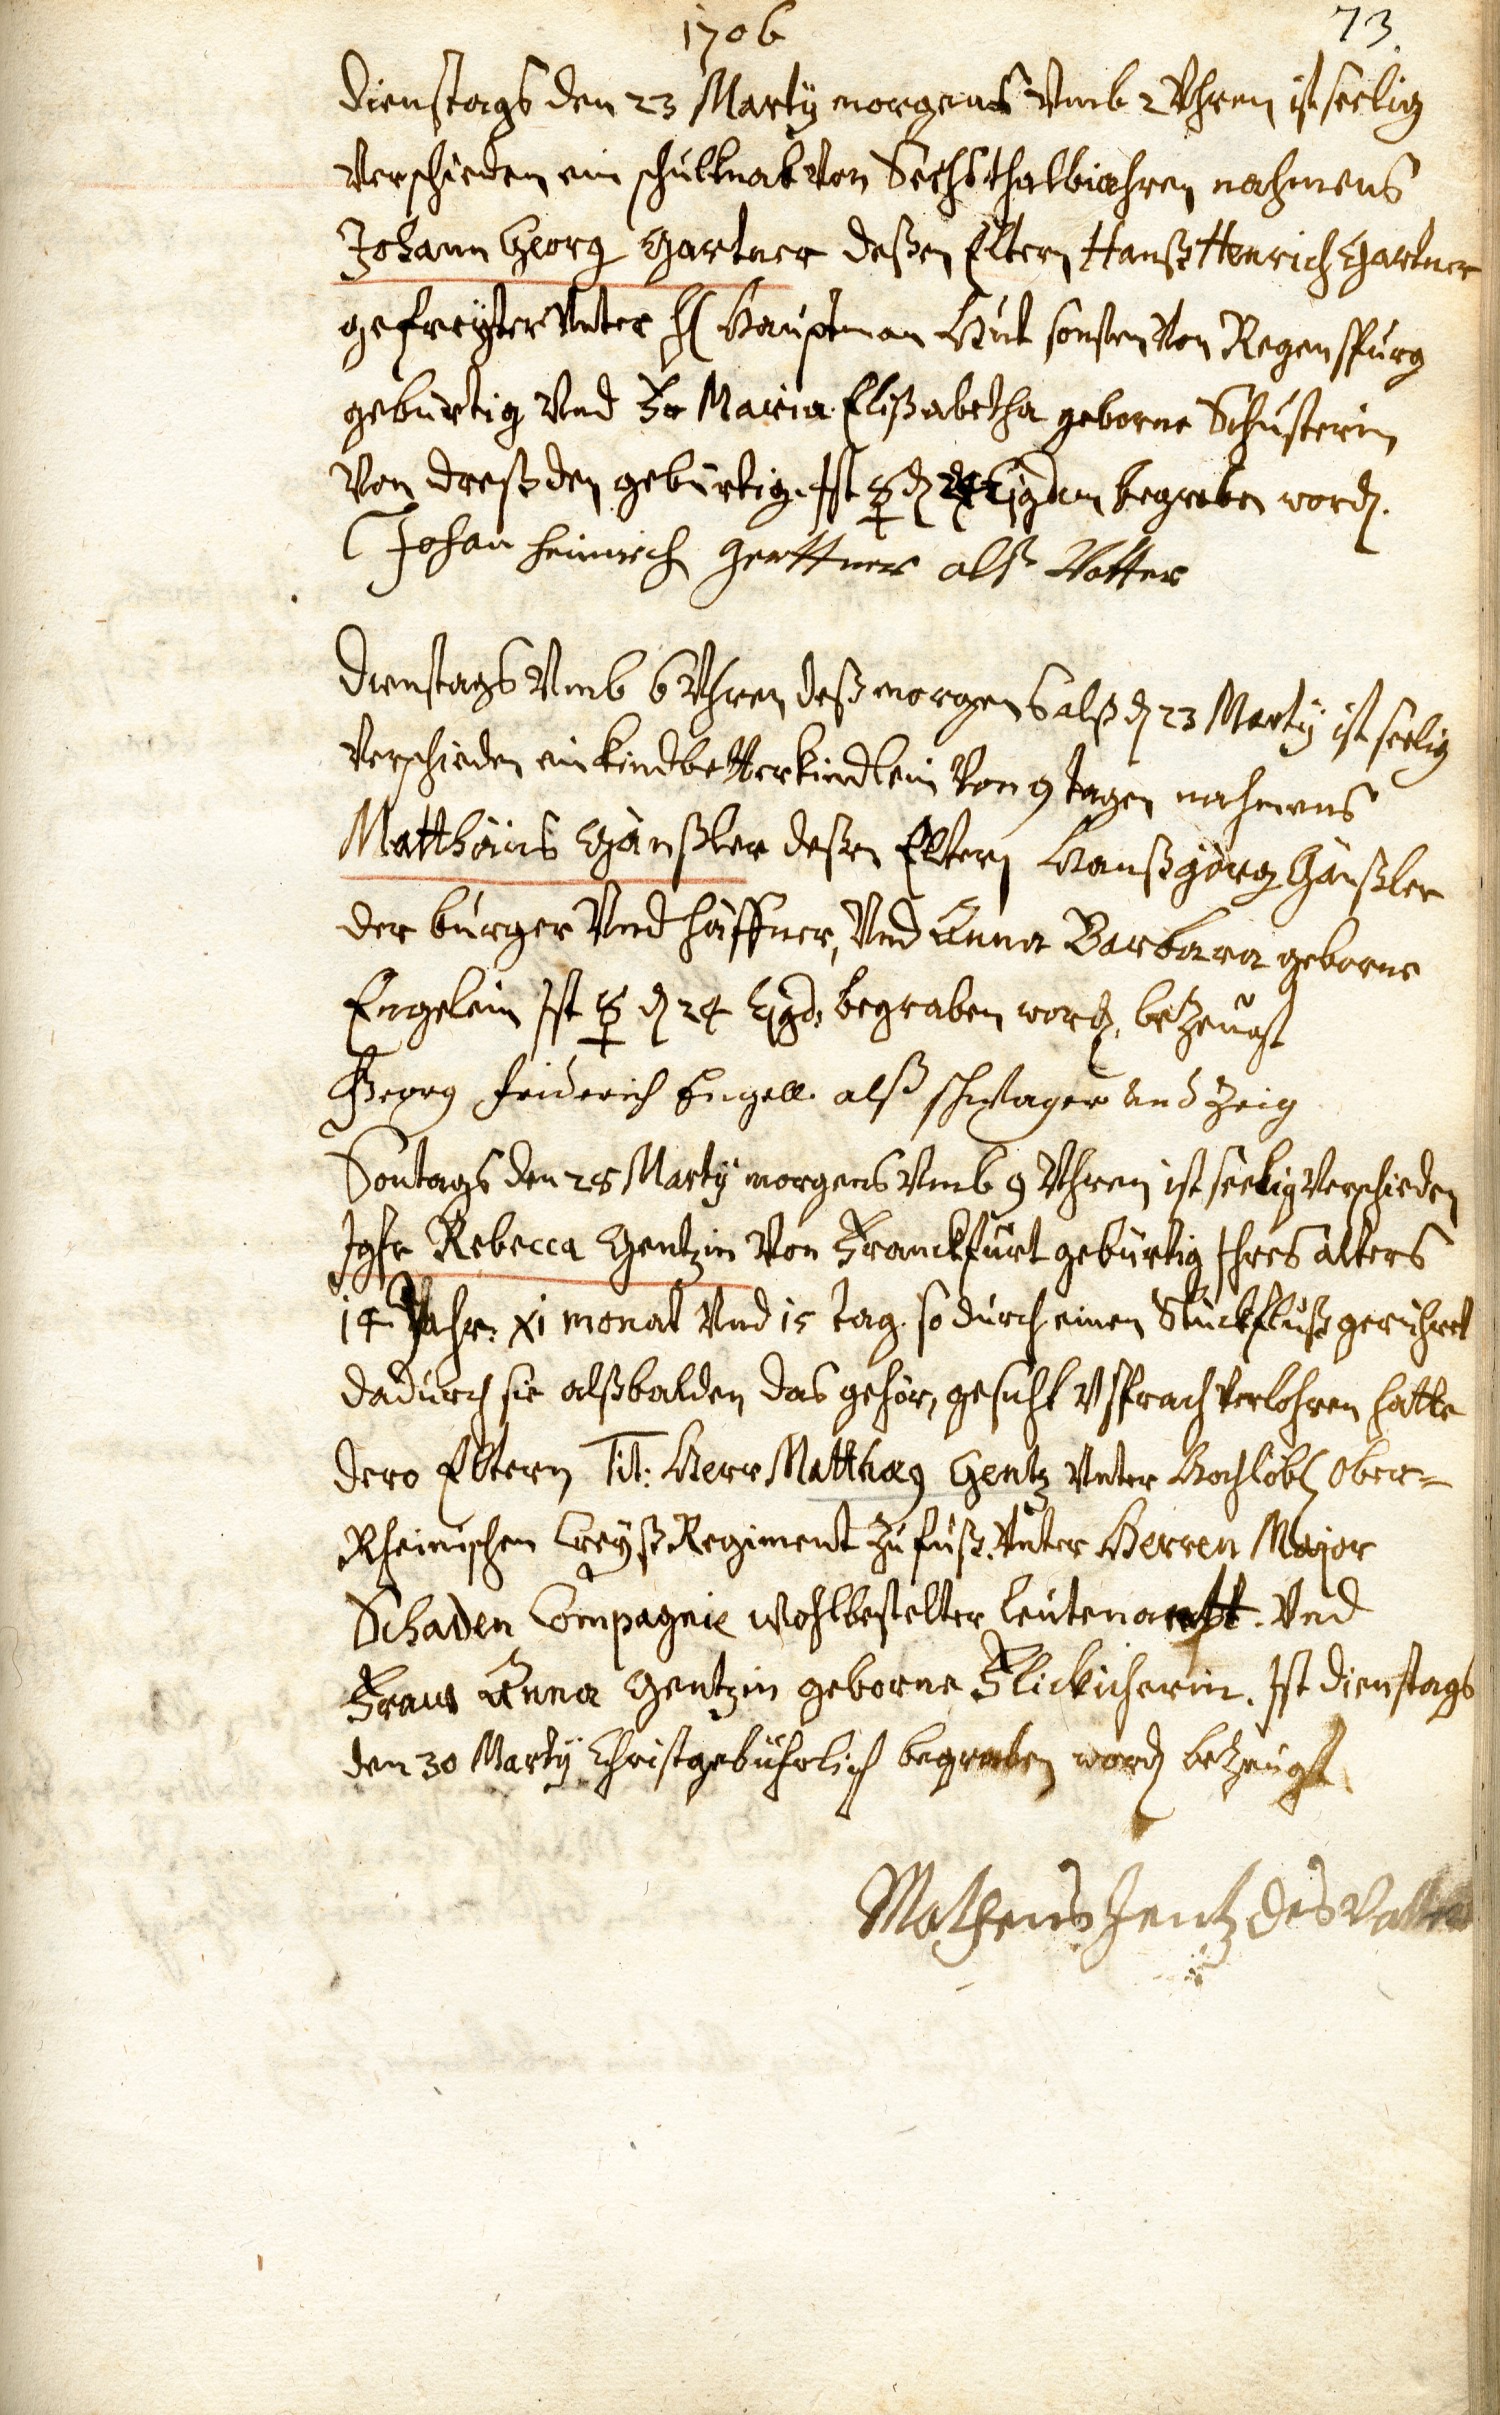 1706
73.
Dienstags den 23 Martÿ morgens Vmb 2 Vhren ist seelig
Verschieden ein schulknab Von Sechsthalbiahren nahmens
Johann Georg Gartner deßen Eltern Hanß Henrich Gartner
gefreÿter Vnter H Hauptman Hut sonsten Von Regenspurg
gebürtig Vnd Fr Maria Elißabetha geborne Schusterin
Von Dreßden gebürtig. Ist ☿ d 24 begraben word.
Johan Heinrich Gerttner alß Vatter
Dienstags Vmb 6 Vhren deß morgens alß d 23 Martÿ ist seelig
Verschieden ein kindbetterkindlein Von 9 tagen nahmens
Matthäus Gänßler deßen Eltern Hanßgörg Gänßler
der burger Vnd häffner, Vnd Anna Barbara geborne
Engelein Ist ☿ d 24 begraben word, bezeugt
Georg friderich Engell alß schwager und Zeig
Sontags den 28 Martÿ morgens Vmb 9 Vhren ist seelig Verschieden
Jgfr Rebecca Gentzin Von Franckfurt gebürtig Ihres alters
14 Jahr. XI monat Vnd 15 tag. so durch einen Stückfluß gerühret
dadurch sie alßbalden das gehör, gesicht V sprach Verlohren hatte
dero Eltern Tit: Herr Matthæ9 Gentz Vnter Hochlöbl Ober=
Rheinischen Creÿß Regiment zu fuß. Vnter Herren Major
Schaden Compagnie wohlbestelter Leutenambt. Vnd
Fraw Anna Gentzin geborne Flickicherin. Ist Dienstags
den 30 Martÿ Christgebührlich begraben word bezeugt
Matheus Jentz des Vatter